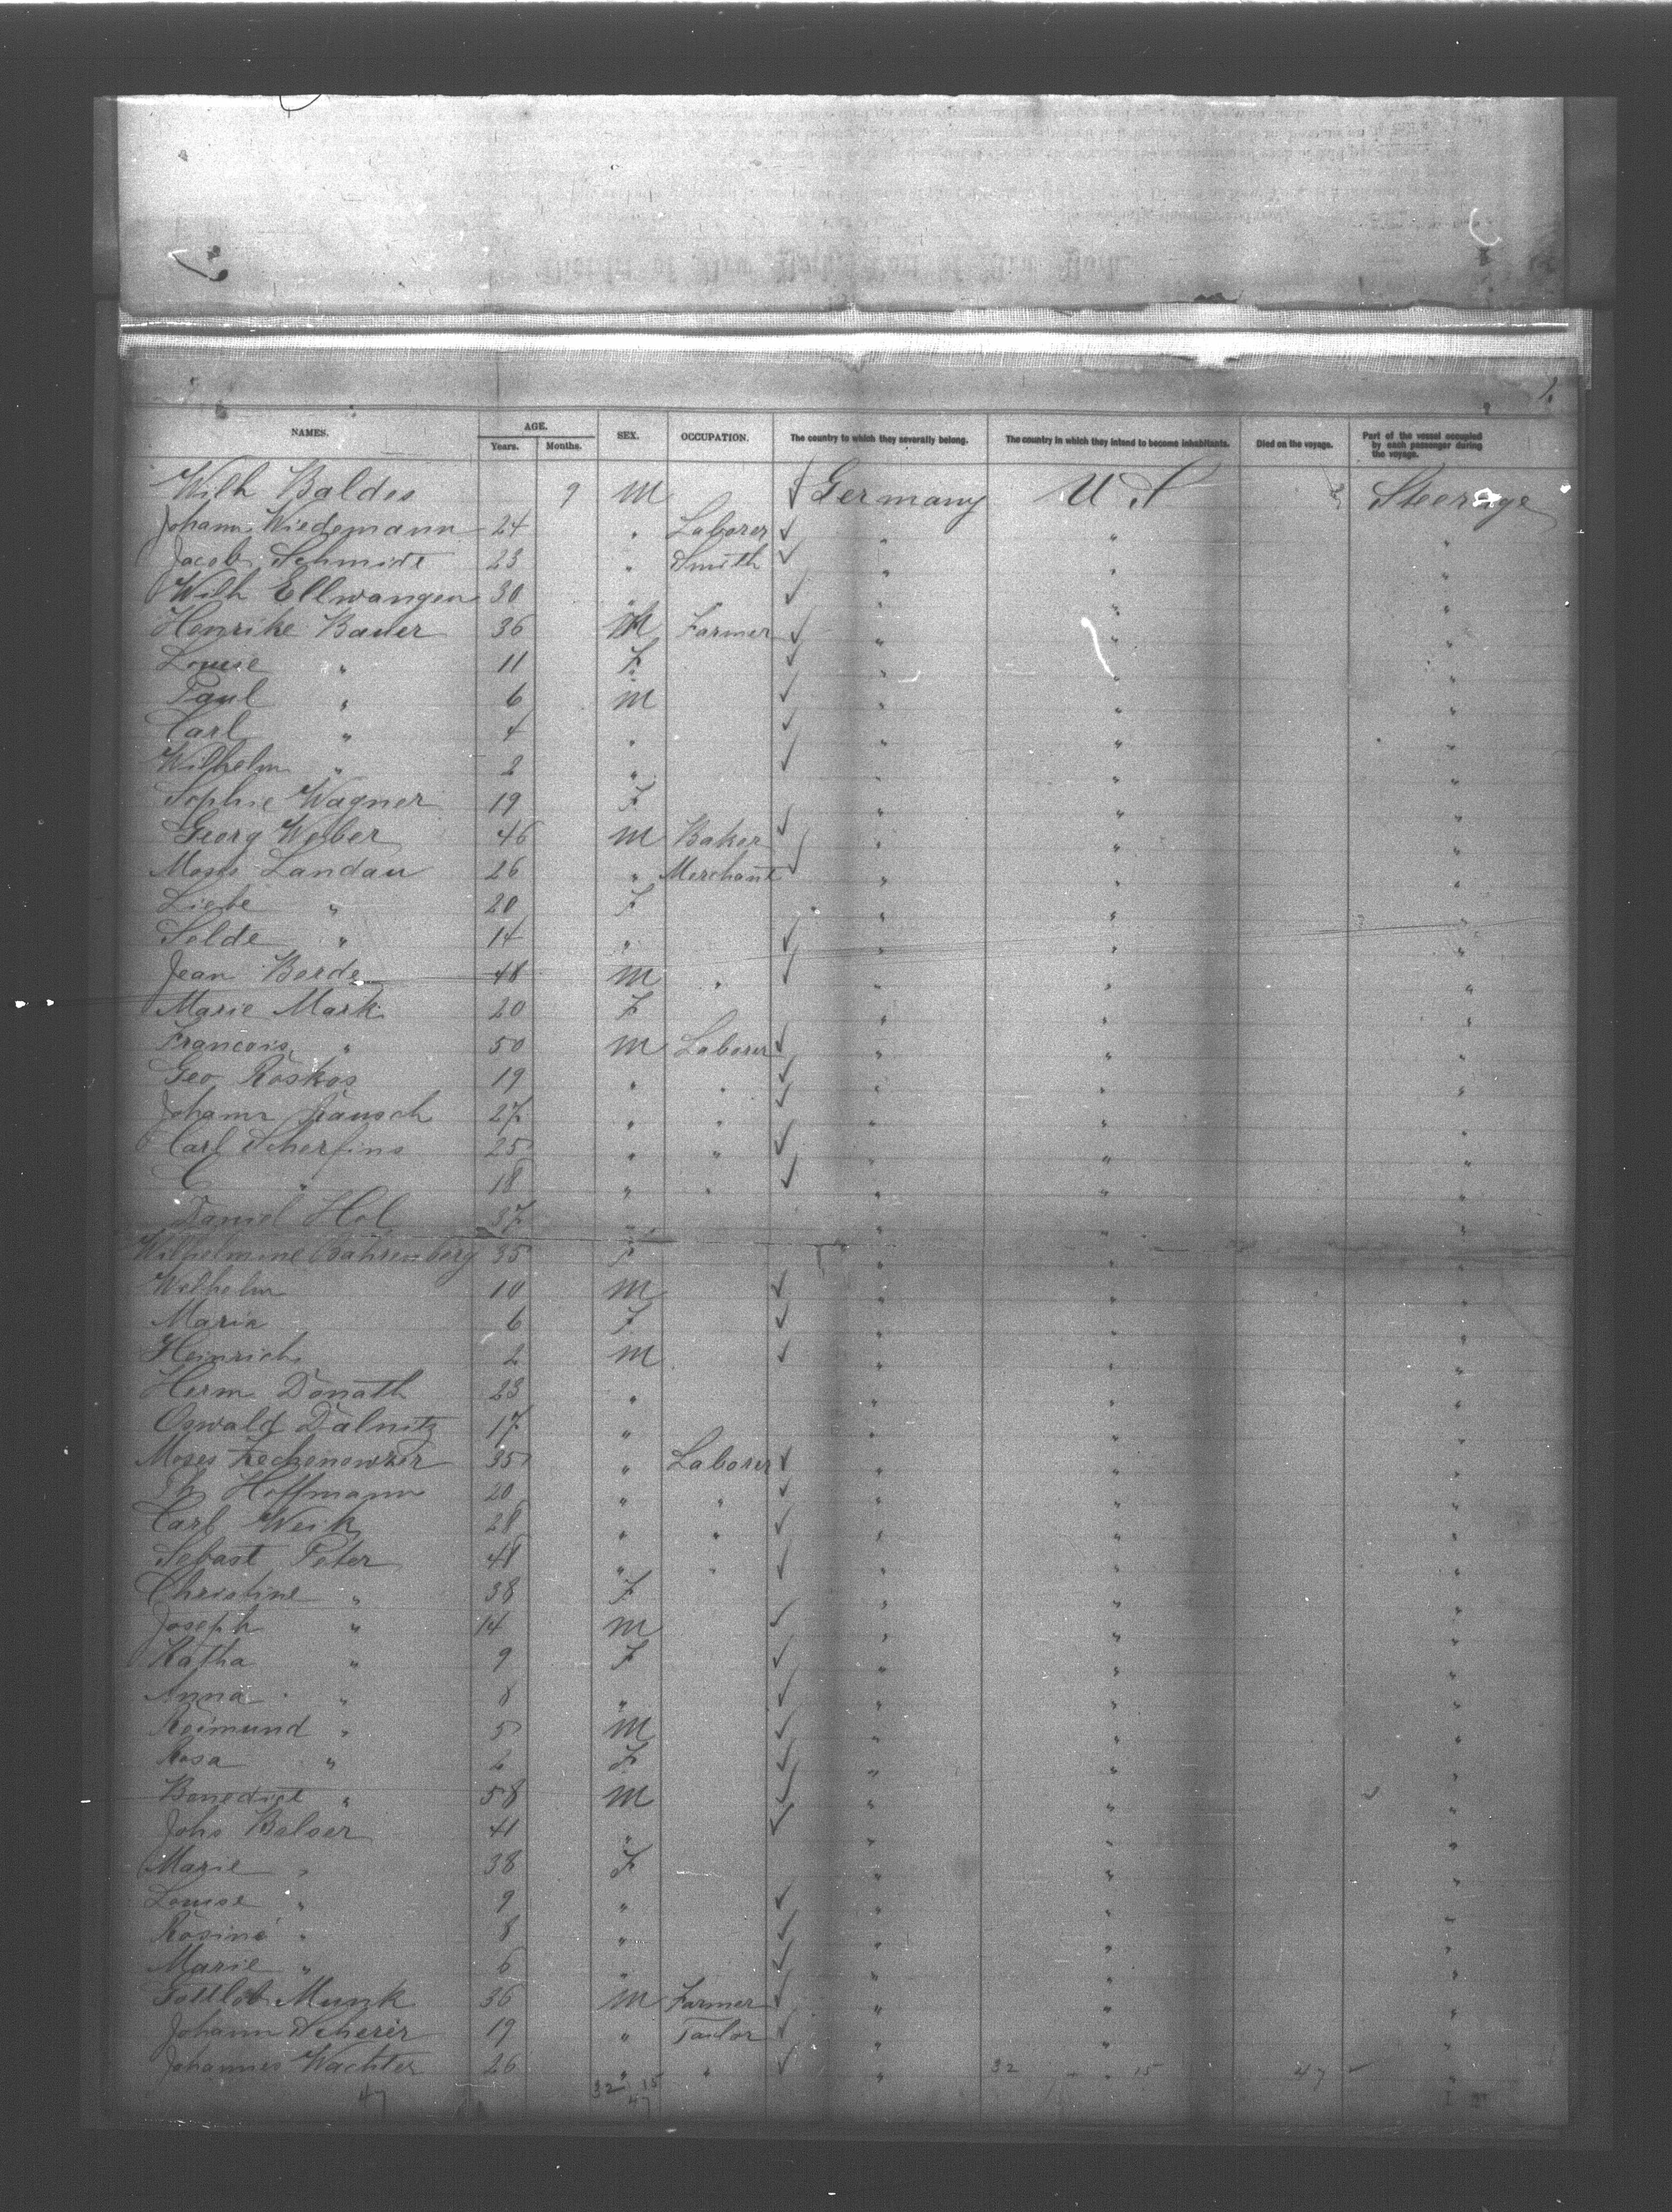 NAMES. AGE. SEX. OCCUPATION. The country to which they severally belong. The country in which they intend to become inhabitants. Died on the voyage. Part of the vessel occupied by each passenger during the voyage.
Years. Months.
Wilh Baldes 9 M Germany U S Steerage
Johann Wiedemann 24 " Laborer " " "
Jacob Schmidt 23 " Smith " " "
Wilh Ellwangen 30 " " " "
Henrike Bauer 36 M Farmer " " "
Louise " 11 F " " "
Paul " 6 M " " "
Carl " 4 " " " "
Wilhelm " 2 " " " "
Sophie Wagner 19 F " " "
Georg Weber 46 M Baker " " "
Moses Landau 26 " Merchant " " "
Liebe " 20 F " " "
Selde " 14 " " " "
Jean Borde 48 M " " " "
Marie Mark 20 F " " "
Francois " 50 M Laborer " " "
Geo Roskos 19 " " " " "
Johann 27 " " " " "
Carl Scherfins 25 " " " " "
C " 18 " " " " "
Daniel Hol 37 " " " "
Wilhelmine Bahrenberg 35 F " " "
Wilhelm 10 M " " "
Maria 6 F " " "
Heinrich 2 M " " "
Herm Donath 23 " " " "
Oswald Dalnitz 17 " " " "
Moses 35 " Laborer " " "
Ph Hoffmann 20 " " " " "
Carl Weik 28 " " " " "
Sebast Peter 48 " " " " "
Christine " 38 F " " "
Joseph " 14 M " " "
Katha " 9 F " " "
Anna " 8 " " " "
Reimund " 5 M " " "
Rosa " 2 F " " "
Benedict " 58 M " " "
Johs Balser 41 " " " "
Marie " 38 F " " "
Louise " 9 " " " "
Rosine " 8 " " " "
Marie " 6 " " " "
Gottlob Munk 36 M Farmer " " "
Johann Scherer 19 " Tailor " " "
Johannes Wachter 26 " " " 32 " 15 47 "
47 32 15
47